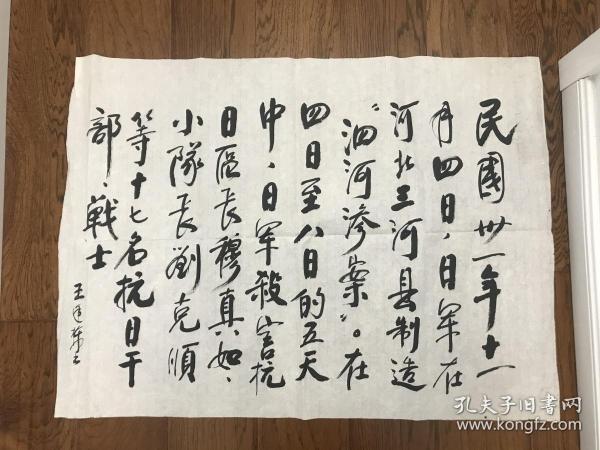 民國卅一年十一
月四日、日军在
河北三河县制造
“泗河渗案”。在
四日至八日的五天
中、日军殺害抗
日區长穆真如、
小隊长劉克順
等十七名抗日干
部、戰士
孔夫子旧書网
www.kongfz.com